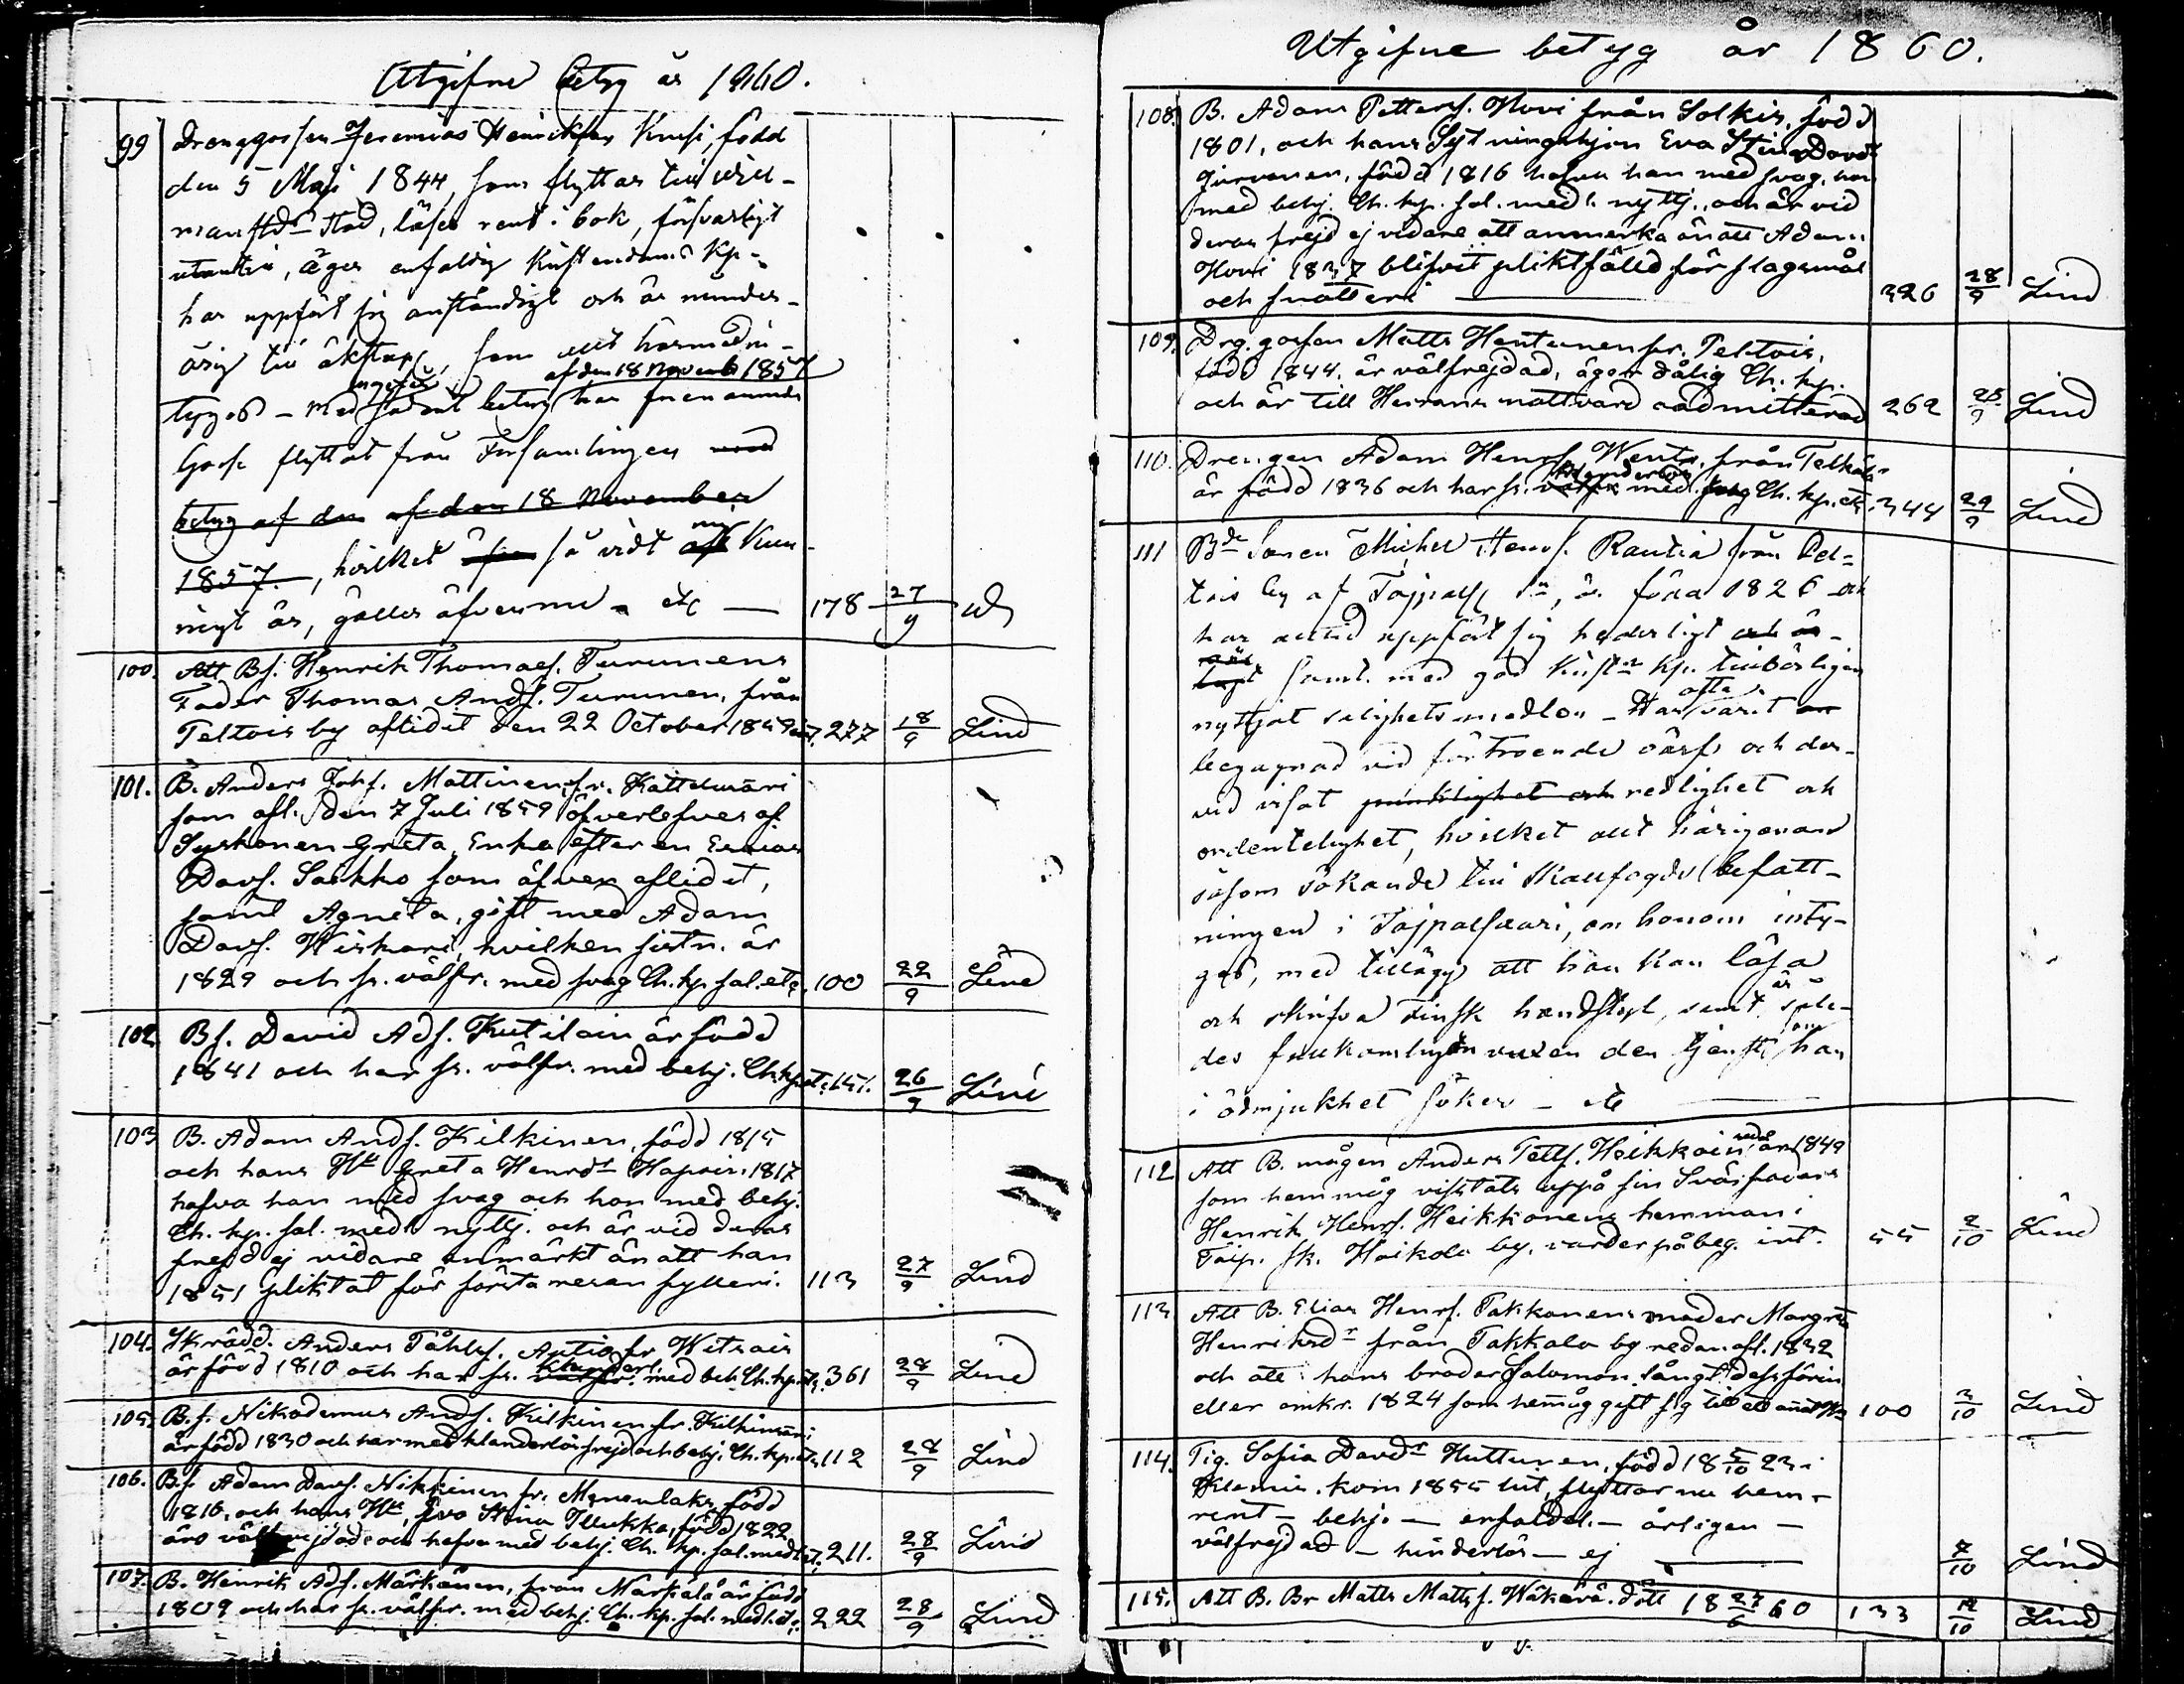 Utgifne betyg år 1860.
99 Drenggossen Jeremias Henriksson Kunsi, född
den 5 Maji 1844, som flyttar till Wil-
manstds stad, läser rent i bok, försvarligt
utantill, äger enfaldig Kristendoms Kp.
har uppfört sig anständigt och är minder-
årig till äktskap, som allt härmed in-
af den 18 Novemb 1857
tygas - Med sådant betyg har förenämnde
Gosse flyttat från Församlingen med
betyg af den af den 18 November
1857., hvilket så vidt mig kun-
nigt är, gäller äfven nu - etc — 178 27/9
100. Att Bs. Henrik Thomass. Turunens
Fader Thomas Ands. Turunen, från
Teltois by aflidit den 22 October 1859 int. 277 18/9 Lind
101. B. Anders Johs. Mattinen, fr. Kattelmäri
som afl. den 7 Juli 1859 öfverlefves af
Syskonen Greta, Enka efter en Esaias
Davs. Saikko som äfven aflidit,
samt Agneta, gift med Adam
Davs. Wiskari, hvilken sistn. är
1829 och fr. välfr. med svag Ch. kp. sal. etc. 100 22/9 Lind
102. Bs. David Ads. Kutilain är född
1841 och har fr. välfr. med behj. Ch. kp. etc. 151. 26/9 Lind
103 B. Adam Ands. Kilkinen, född 1815
och hans Hu Greta Henrdr Hapoin, 1817
hafva han med svag och hon med behj.
Ch. kp. sal. medl. nyttj. och är vid deras
frejd ej vidare anmärkt än att han
1851 pliktat för första resan fylleri. 113 27/9 Lind
104. Skrädd. Anders Påhls. Antia fr. Witsais
klanderl.
är född 1810 och har fr. välfr. med beh. Ch. kp. etc. 361 28/9 Lind
105. B.s. Nikodemus Ands. Kilkinen fr. Kilkinmäri
är född 1830 och har med klanderlös frejd och behj. Ch. kp. etc. 112 28/9 Lind
106. B.s. Adam Davs. Nikkinen fr. Monenlaks, född
1816, och hans Hu, Eva Stina Tlukka, född 1822
äro välfrejdade och hafva med behj. Ch. kp. sal. medl. etc. 211. 28/9 Lind
107. B. Henrik Ads. Märkänen, från Märkälä är född
1809 och har fr. välfr. med behj. Ch. kp. sal. medl. etc. 222 28/9 Lind
Utgifne betyg år 1860.
108. B. Adam Petters. Hovi från Solkis, född
1801, och hans Sytningshjon Eva Stina Davdr
Jurvanen, född 1816 hafva han med svag, hon
med behj. Ch. kp. sal. medl. nyttj., och är vid
deras frejd ej vidare att anmerka än att Adam
Hovi 1837 blifvit pliktfälld för slagsmål
och snatteri — 326 28/9 Lind
109. Drg. gossen Matts Hentunen fr. Teltois,
född 1844, är välfrejdad, äger dålig Ch. kp.
och är till Herrans nattvard admitterad 262 28/9 Lind
110. Drengen Adam Henrs. Wento, från Telkälä
klanderlös
är född 1836 och har fr. välfr. med svag Ch. kp. etc. 344 29/9 Lind
111 Bde Sonen Michel Henrs. Rautia från Pel-
tois by af Tajpals Sn, är född 1826 och
har alltid uppfört sig hederligt och är
samt. med god Krist:s Kp. tillbörligen
ofta
nyttjat salighetsmedlen - Har varit
begagnad vid förtroende värf och der-
vid visat punktlighet och redlighet och
ordentelighet, hvilket allt härigenom
såsom sökande till Skallfogde befatt-
ningen i Tajpalsaari, om honom inty-
gas, med tillägg att han kan läsa
och skrifva Finsk handstyl, samt är såle-
des fullkomligen vuxen den tjenst som han
i ödmjukhet söker - etc
112 Att B. mågen Anders Petts. Heikkoin redan år 1849
som hemmåg vistats uppå sin Svärfaders
Henrik Henrs. Heikkonens hemman i
Taip. sk. Haikola by, varder påbeg. int. 55 2/10 Lind
113 Att B. Elias Henrs. Takkanens moder Margreta
Henriksdr från Takkala by redan afl. 1832
och att hans broder Salomon långt dessförin
eller omkr. 1824 som hemmåg gift sig till ett annat Hn 100 3/10 Lind
114. Pig. Sofia Davdr Huttunen, född 18 5/10 23 i
Klemis. kom 1855 hit, flyttar nu hem -
rent - behj. - enfaldel. - årligen -
välfrejdad - hinderlös - ej — 7/10 Lind
115. Att B. Br Matts Matts s. Wäkävä. dött 18 27/6 60 133 12/10 Lind